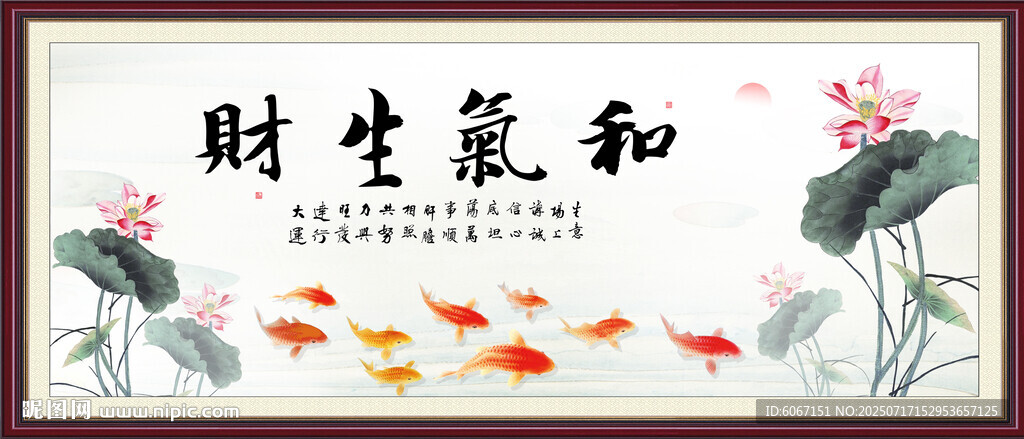 和氣生財
生意場上講誠信心底坦蕩萬事順肝膽相照共努力興旺發達行大運
昵图网 www.nipic.com
ID:6067151 NO:20250717152953657125